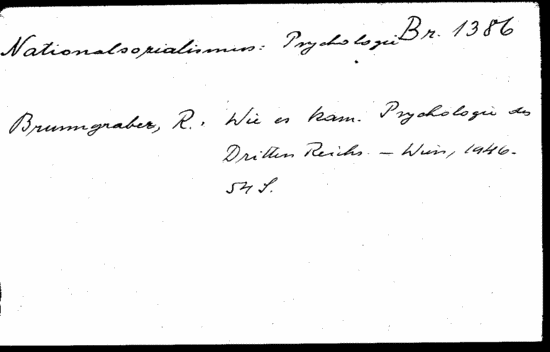 Nationalsozialismus: Psychologie Br. 1386
Brunngraber, R.: Wie es kam. Psychologie des
Dritten Reichs. – Wien, 1946.
54 S.